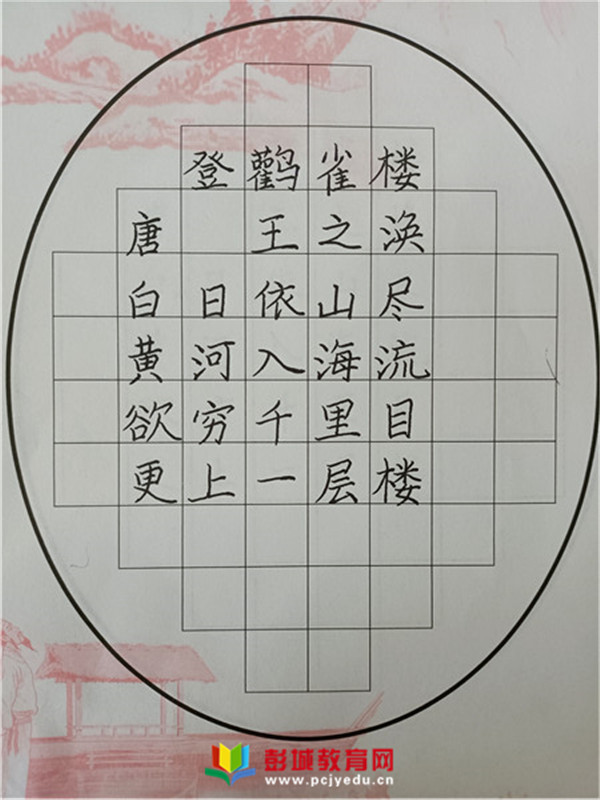 登鹳雀楼
唐 王之涣
白日依山尽
黄河入海流
欲穷千里目
更上一层楼
彭城教育网
www.pcjyedu.cn